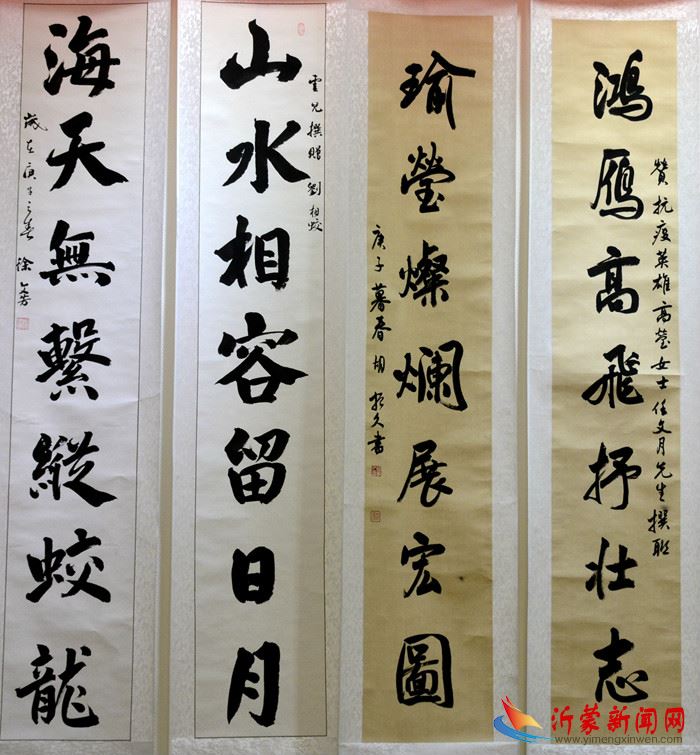 鴻雁高飛抒壮志
贊抗疫英雄高瑩女士任文月先生撰联
瑜瑩燦爛展宏圖
庚子暮春胡久書
山水相容留日月
雲兄撰贈劉相蛟
海天無繫縱蛟龍
歲在庚子之春徐
沂蒙新闻网
www.yimengxinwen.com